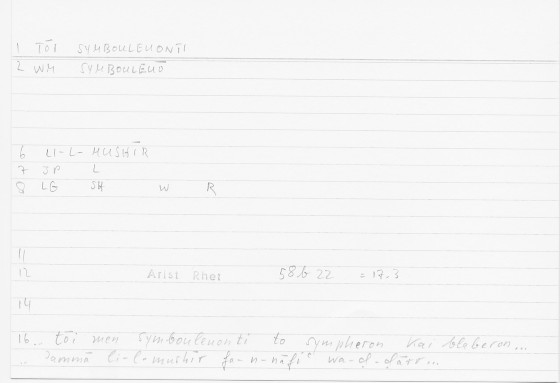 1 TŌI SYMBOULEUONTI
2 WM SYMBOULEUŌ
6 LI-L-MUSHĪR
7 JP L
8 LG SH W R
11
12 Arist Rhet 58b 22 = 17.3
14
16 .. tōi men symbouleuonti to sympheron kai blaberon...
.. ʾammā li-l-mushīr fa-n-nāfiʿ wa-ḍ-ḍārr...